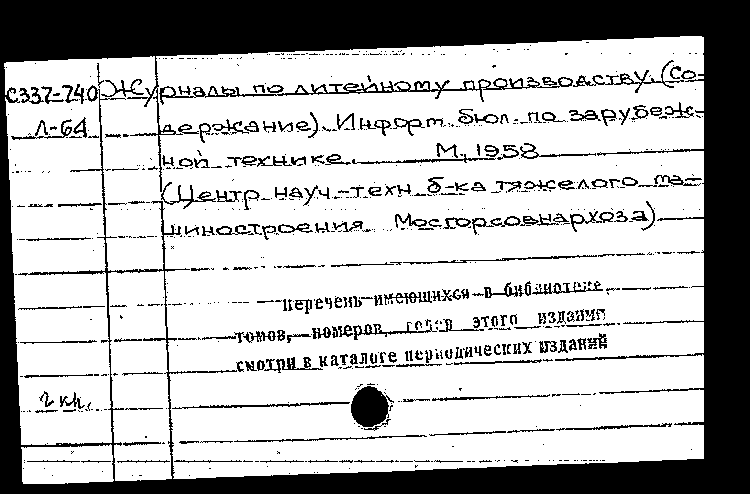 С337-740 Журналы по литейному производству. (Со-
Л-64 держание). Информ. бюл. по зарубеж-
ной технике. М., 1958
(Центр. науч.-техн. б-ка тяжелого ма-
шиностроения Мосгорсовнархоза)
Перечень имеющихся в библиотеке
томов, номеров, годов этого издания
смотри в каталоге периодических изданий
2 кн.